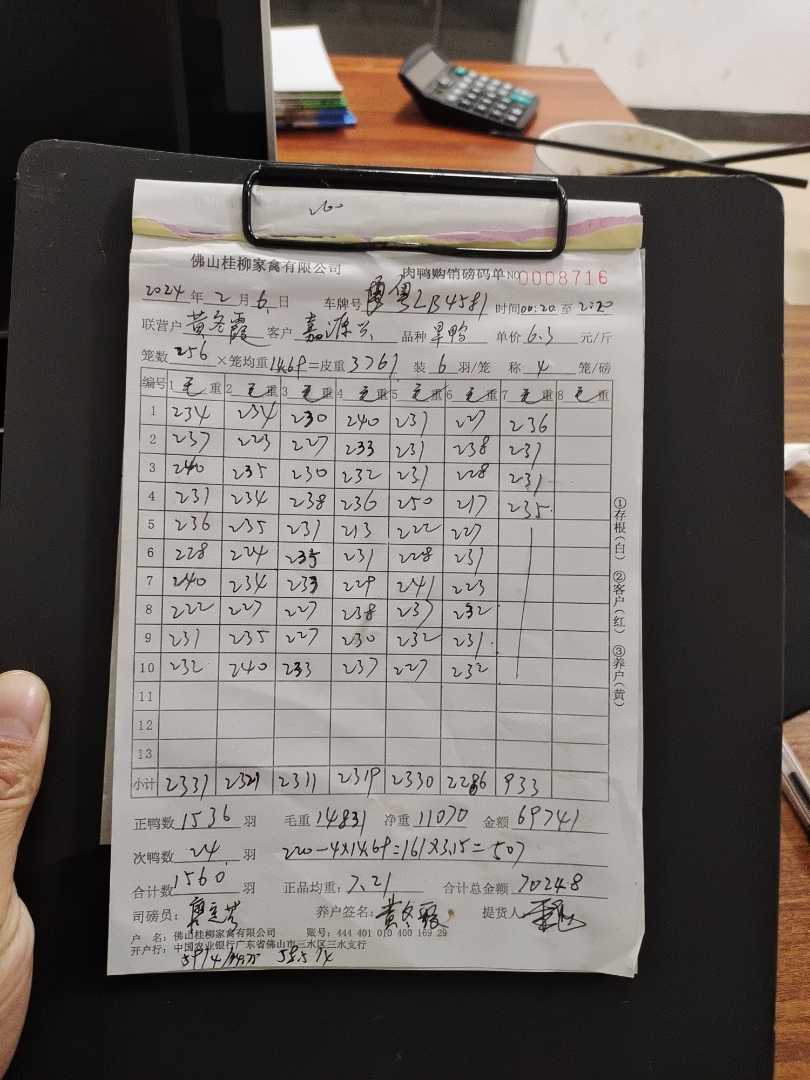 佛山桂柳家禽有限公司 肉鸭购销磅码单 NO 0008716
2024年2月6日 车牌号 粤LB4581 时间00:20至2:20
联营户 黄冬霞 客户 嘉源兴 品种 旱鸭 单价 6.3 元/斤
笼数 256 ×笼均重 14.69 =皮重 3761 装 6 羽/笼 称 4 笼/磅
编号 1 毛重 2 毛重 3 毛重 4 毛重 5 毛重 6 毛重 7 毛重 8 毛重
1 234 234 230 240 237 227 236
2 237 223 227 233 231 238 231
3 240 235 230 232 231 228 231
4 231 234 238 236 250 217 235
5 236 235 231 213 222 227
6 228 224 235 231 228 231
7 240 234 233 229 241 223
8 222 227 227 238 237 232
9 231 235 227 230 232 231
10 232 240 233 237 227 232
11
12
13
小计 2331 2321 2311 2319 2330 2286 933
正鸭数 1536 羽 毛重 14831 净重 11070 金额 69741
次鸭数 24 羽 220-4×14.69=161×3.15=507
合计数 1560 羽 正品均重: 7.21 合计总金额 70248
司磅员: 养户签名: 黄冬霞 提货人
户 名: 佛山桂柳家禽有限公司 账号: 444 401 010 400 169 29
开户行: 中国农业银行广东省佛山市三水区三水支行
①存根(白) ②客户(红) ③养户(黄)